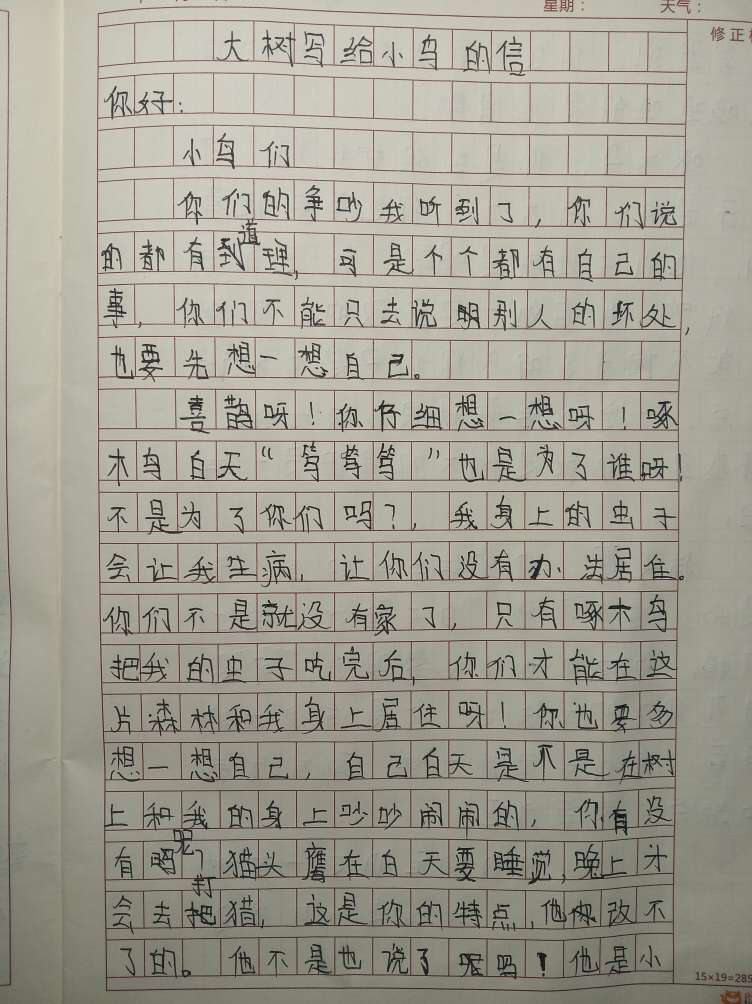 星期： 天气：
修正
大树写给小鸟的信
你好：
小鸟们
你们的争吵我听到了，你们说
的都有道理，可是个个都有自己的
事，你们不能只去说明别人的坏处，
也要先想一想自己。
喜鹊呀！你仔细想一想呀！啄
木鸟白天“笃笃笃”也是为了谁呀！
不是为了你们吗？，我身上的虫子
会让我生病，让你们没有办法居住。
你们不是就没有家了，只有啄木鸟
把我的虫子吃完后，你们才能在这
片森林和我身上居住呀！你也要多
想一想自己，自己白天是不是在树
上和我的身上吵吵闹闹的，你有没
有呢？猫头鹰在白天要睡觉，晚上才
会去打猎，这是你的特点，他你改不
了的。他不是也说了呢吗！他是小
15×19=285